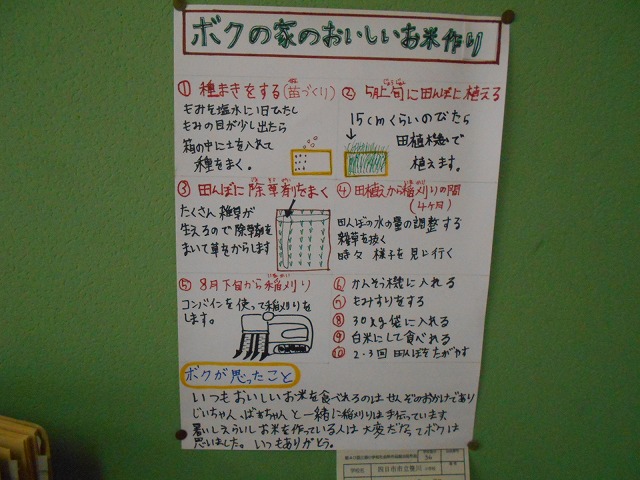 ボクの家のおいしいお米作り
① 種まきをする(苗づくり)
なえ
もみを塩水に1日ひたし
もみの目が少し出たら
箱の中に土を入れて
種をまく。
② 5月上旬に田んぼに植える
じょうじゅん
15cmくらいのびたら
田植機で
植えます。
③ 田んぼに除草剤をまく
たくさん雑草が
生えるので除草剤を
まいて草をからします
④ 田植えから稲刈りの間
(4ヶ月)
田んぼの水の量の調整する
雑草を抜く
時々 様子を見に行く
⑤ 8月下旬から稲刈り
コンバインを使って稲刈りを
します。
⑥ かんそう機に入れる
⑦ もみすりをする
⑧ 30kg袋に入れる
⑨ 白米にして食べれる
⑩ 2・3回 田んぼをたがやす
ボクが思ったこと
いつもおいしいお米を食べれるのは せんぞのおかけであり
じいちゃん、ばあちゃんと一緒に稲刈りは手伝っています
暑いしえらいしお米を作っている人は大変だなってボクは
思いました。いつもありがとう。
学校名
四日市市立
小学校